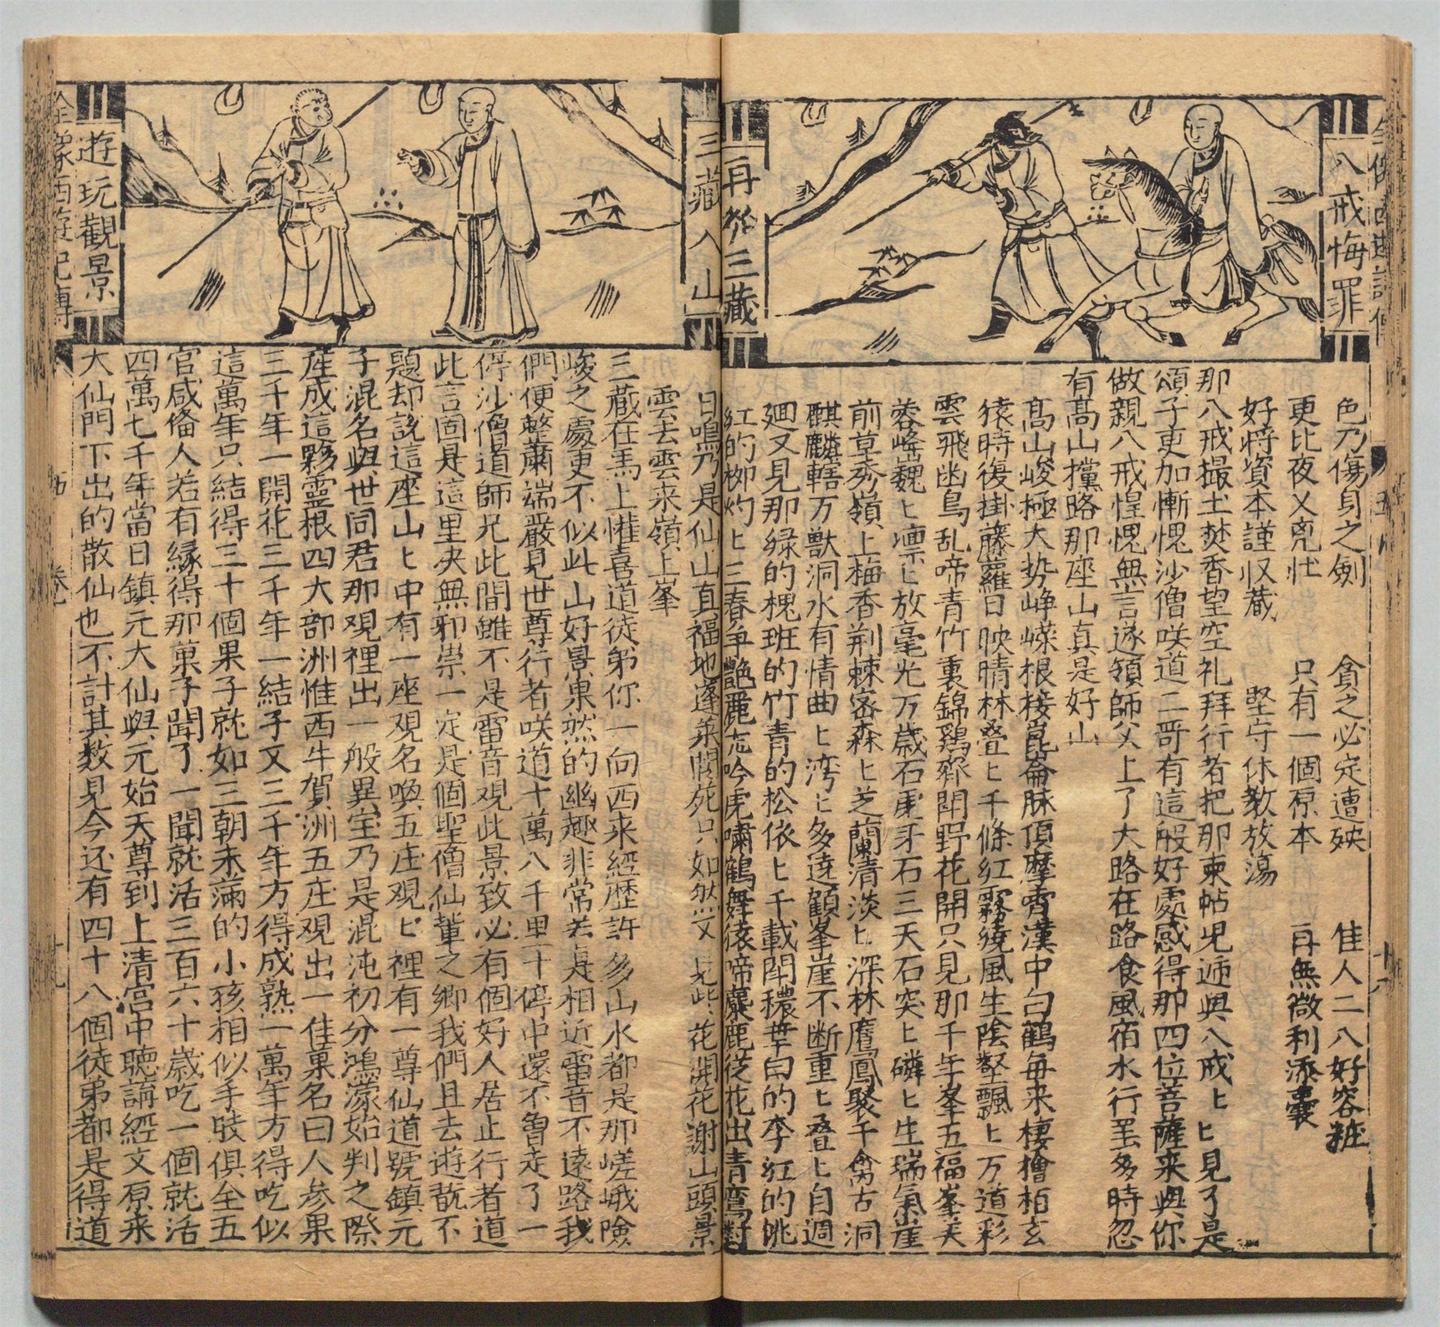 全像西遊記傳
八戒悔罪
再参三藏
色乃傷身之劍　貪之必定遭殃　佳人二八好容粧
更比夜乂兇忙　只有一個原本　再無微利添囊
好將資本謹収蔵　堅守休教放蕩
那八戒撮土焚香望空礼拜行者把那柬帖児逓與八戒ヒヒ見了是
頌子更加慚愧沙僧咲道二哥有這般好處感得那四位菩薩来與你
做親八戒惶愧無言遂領師父上了大路在路食風宿水行至多時忽
有髙山攩路那座山真是好山
髙山峻極大势峥嶸根接崑崙脉頂摩霄漢中白鶴每来棲檜栢玄
猿時復掛藤蘿日映晴林叠ヒ千條紅霧繞風生陰壑飄ヒ万道彩
雲飛幽鳥乱啼青竹裏錦鷄齊鬭野花開只見那千年峯五福峯芙
蓉峰巍ヒ凛ヒ放毫光万歲石乕牙石三天石突ヒ磷ヒ生瑞氣崖
前草秀嶺上梅香荆棘密森ヒ芝蘭清淡ヒ深林鷹鳳聚千禽古洞
麒麟轄万獸洞水有情曲ヒ湾ヒ多遶顧峯崖不断重ヒ叠ヒ自週
廻又見那緑的槐班的竹青的松依ヒ千載鬭穠華白的李紅的桃
紅的栁灼ヒ三春争艶麗龙吟虎嘯鶴舞猿啼麋鹿從花出青鸞對
三藏入山
遊玩觀景
日鳴乃是仙山真福地蓬莱閬苑只如然又見些花開花謝山頭景
雲去雲来嶺上峯
三藏在馬上懽喜道徒弟你一向西来經歷許多山水都是那嵯峨險
峻之處更不似此山好景果然的幽趣非常若是相近雷音不遠路我
們便整蕭端嚴見世尊行者咲道十萬八千里十停中還不曾走了一
停沙僧道師兄此間雖不是雷音观此景致必有個好人居止行者道
此言固是這里决無邪祟一定是個聖僧仙輩之鄉我們且去遊翫不
題却說這座山ヒ中有一座观名喚五庄观ヒ裡有一尊仙道號鎮元
子混名與世同君那观裡出一般異宝乃是混沌初分鴻濛始判之際
産成這夥靈根四大部洲惟西牛賀洲五庄观出一佳果名曰人参果
三千年一開花三千年一結子又三千年方得成熟一萬年方得吃似
這萬年只結得三十個果子就如三朝未滿的小孩相似手肢俱全五
官咸偹人若有縁得那菓子聞了一聞就活三百六十歲吃一個就活
四萬七千年當日鎮元大仙與元始天尊到上清宫中聽講經文原来
大仙門下出的散仙也不計其数見今还有四十八個徒弟都是得道
全像西遊記傳
卷
十九